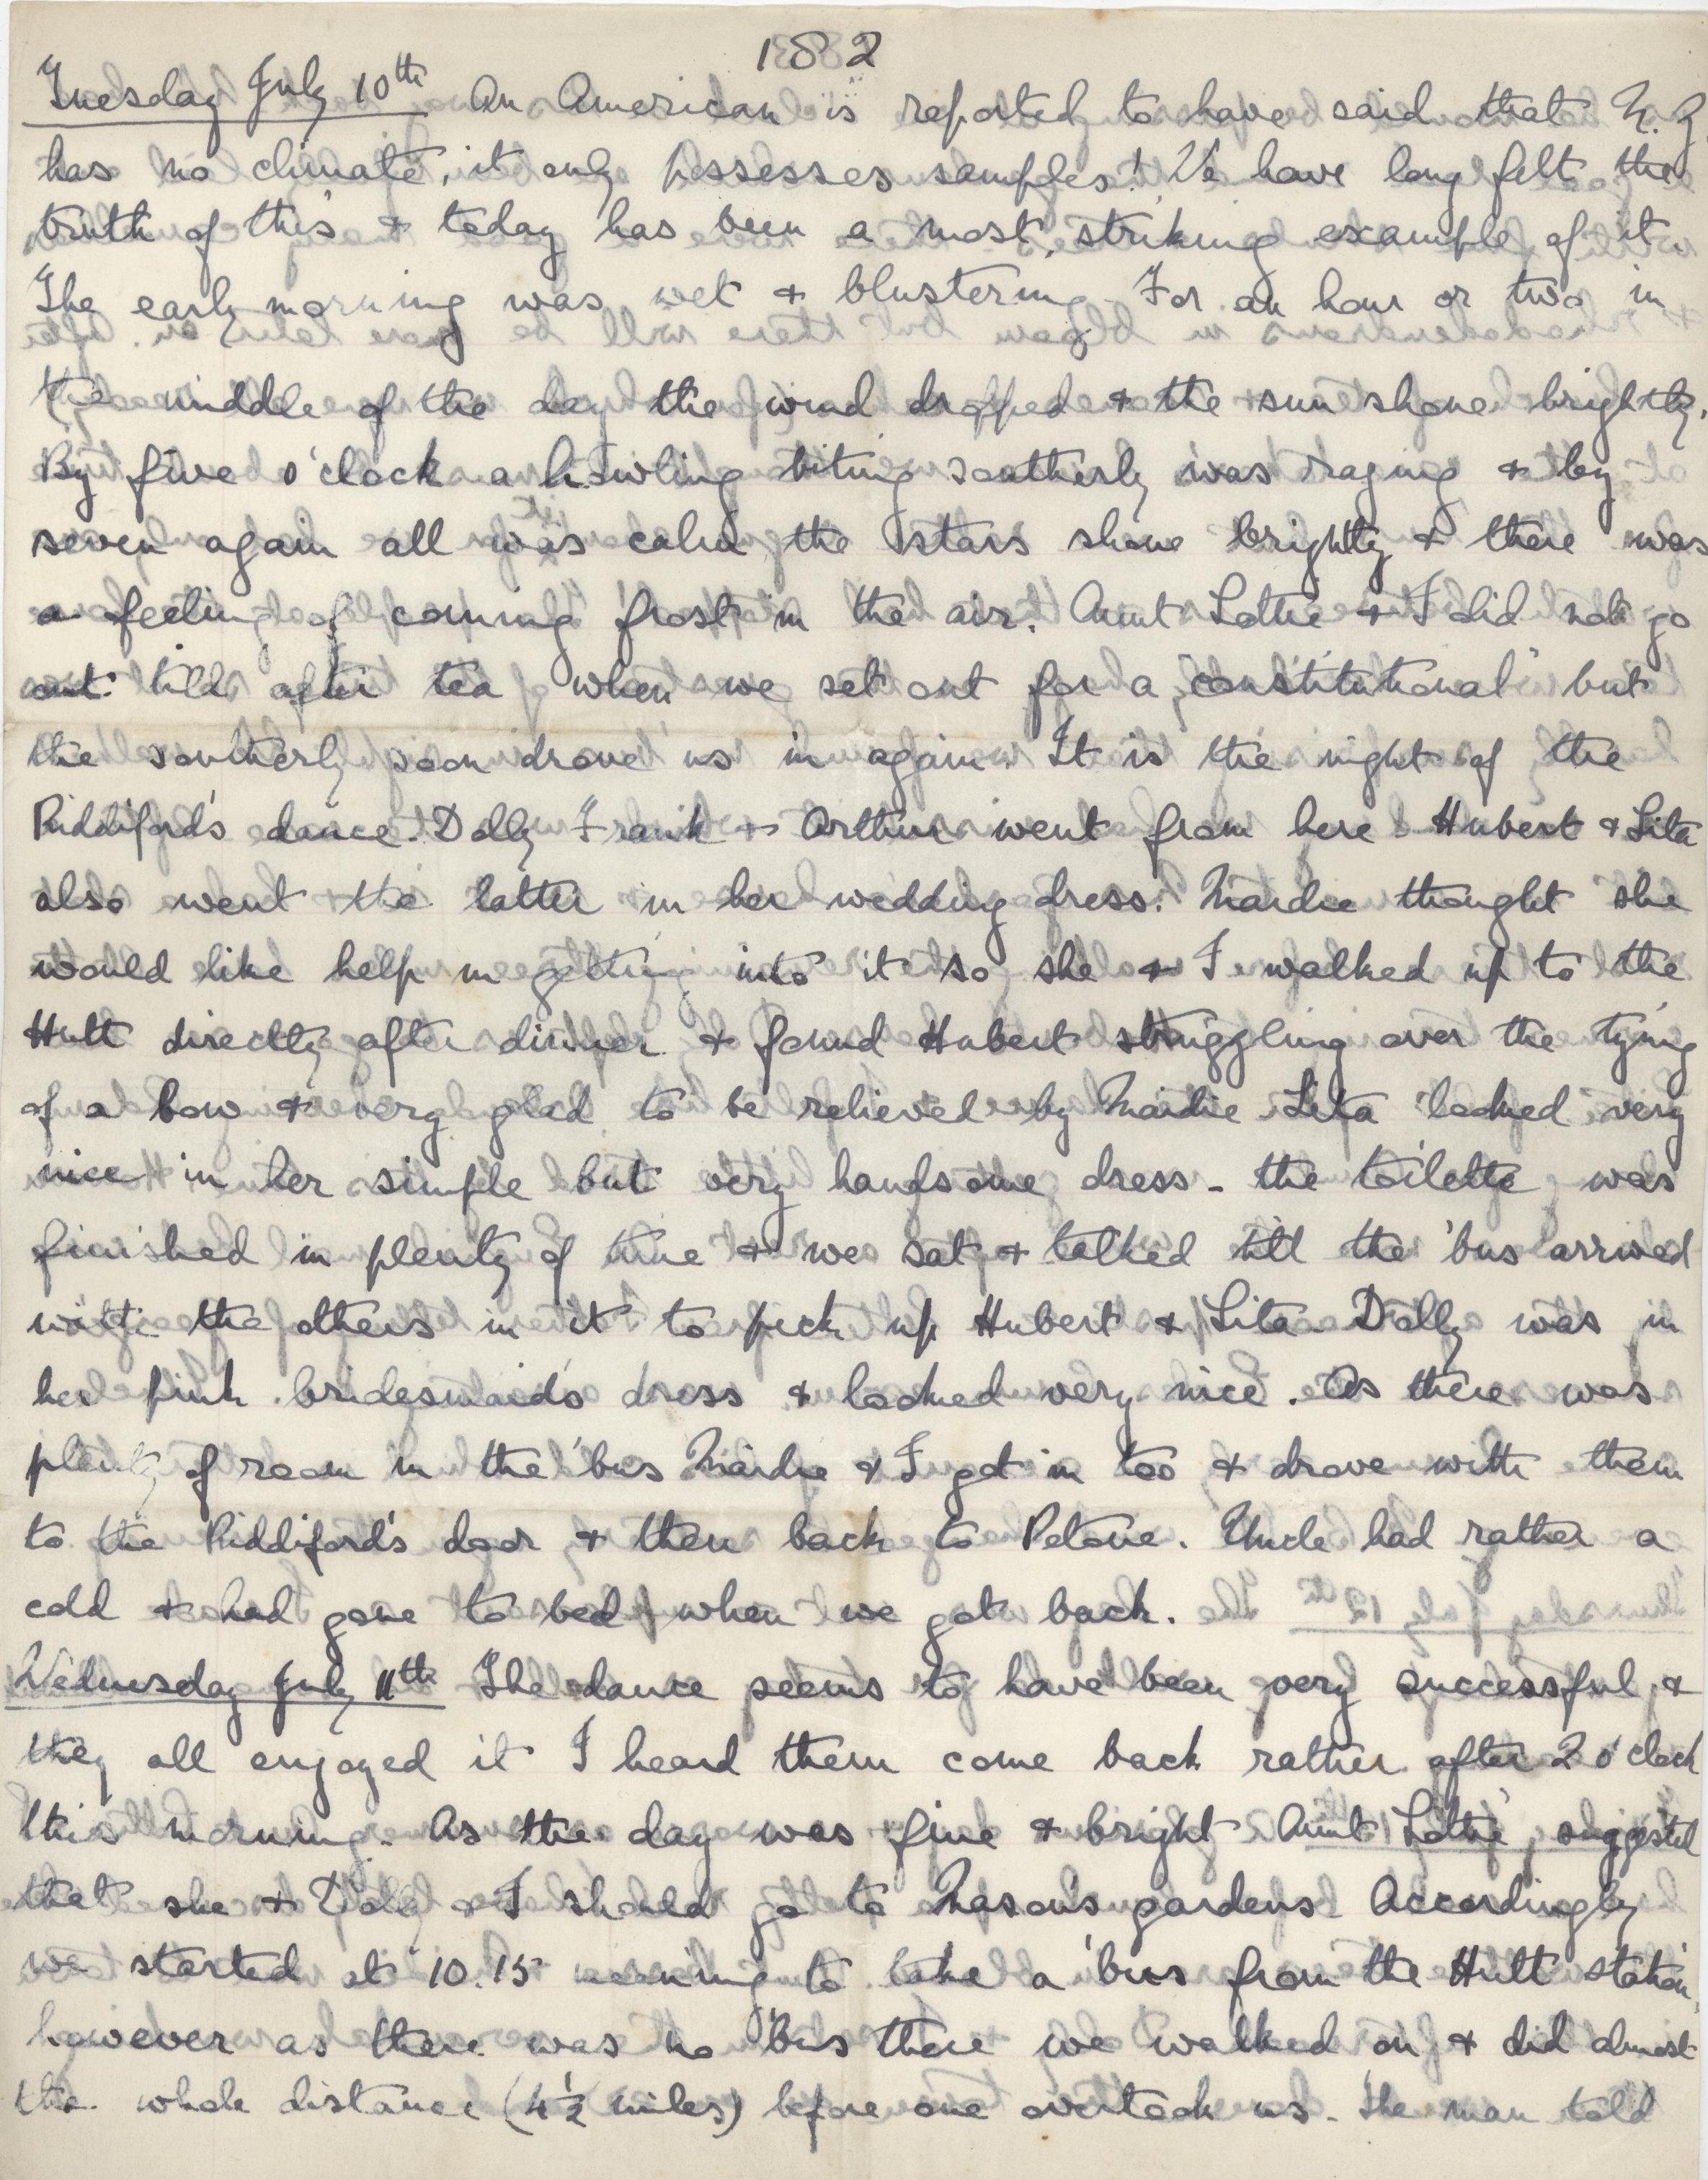 182
Tuesday July 10th An American is reported to have said that N.Z
has no climate, it only possesses samples! We have long felt the
truth of this & today has been a most striking example of it.
The early morning was wet & blustering. For an hour or two in
the middle of the day the wind dropped & the sun shone brightly.
By five o'clock a howling biting southerly was raging & by
seven again all was calm the stars shone brightly & there was
a feeling of coming frost in the air. Aunt Lottie & I did not go
out till after tea when we set out for a "constitutional" but
the southerly soon drove us in again. It is the night of the
Riddiford's dance. Dolly Frank & Arthur went from here & Hubert & Lita
also went the latter in her wedding dress. Mardie thought she
would like help in getting into it so she & I walked up to the
Hutt directly after dinner & found Hubert struggling over the tying
of a bow & very glad to be relieved by Mardie Lita looked very
nice in her simple but very handsome dress - the toilette was
finished in plenty of time & we sat & talked till the 'bus arrived
with the others in it to pick up Hubert & Lita. Dolly was in
her pink bridesmaid's dress & looked very nice. As there was
plenty of room in the 'bus Mardie & I got in too & drove with them
to the Riddiford's door & then back to Petone. Uncle had rather a
cold & had gone to bed when we got back.
Wednesday July 11th The dance seems to have been very successful &
they all enjoyed it I heard them come back rather after 2 o'clock
this morning. As the day was fine & bright Aunt Lottie suggested
that she & Dolly & I should go to Mason's gardens. Accordingly
we started at 10.15 meaning to take a 'bus from the Hutt station,
however as there was no 'bus there we walked on & did almost
the whole distance (4½ miles) before one overtook us. The man told